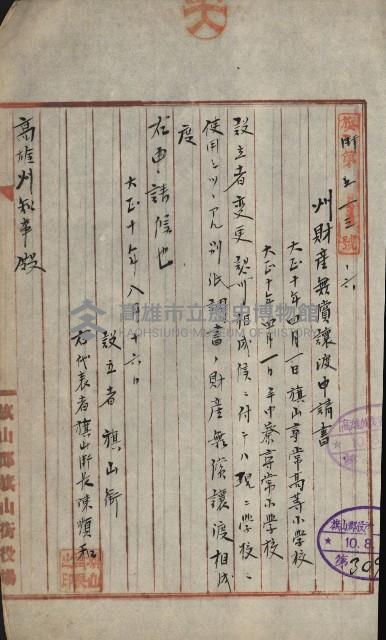 旗街第五一三號
州財産無償讓渡申請書
大正十年四月一日旗山尋常高等小學校
大正十年四月一日手中寮尋常小學校
設立者變更認可相成候ニ付テハ現ニ學校ニ
使用シツヽアル別紙調書ノ財産無償讓渡相成
度
右申請候也
大正十年八月十六日
設立者 旗山街
右代表者旗山街長陳順和
高雄州知事殿
旗山郡旗山街役場
高雄市立歷史博物館
KAOHSIUNG MUSEUM OF HISTORY
旗山郡役所
10.8
第309